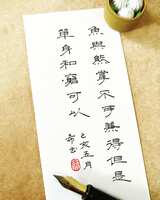 魚與熊掌不可兼得但是
單身和窮可以
乙亥五月